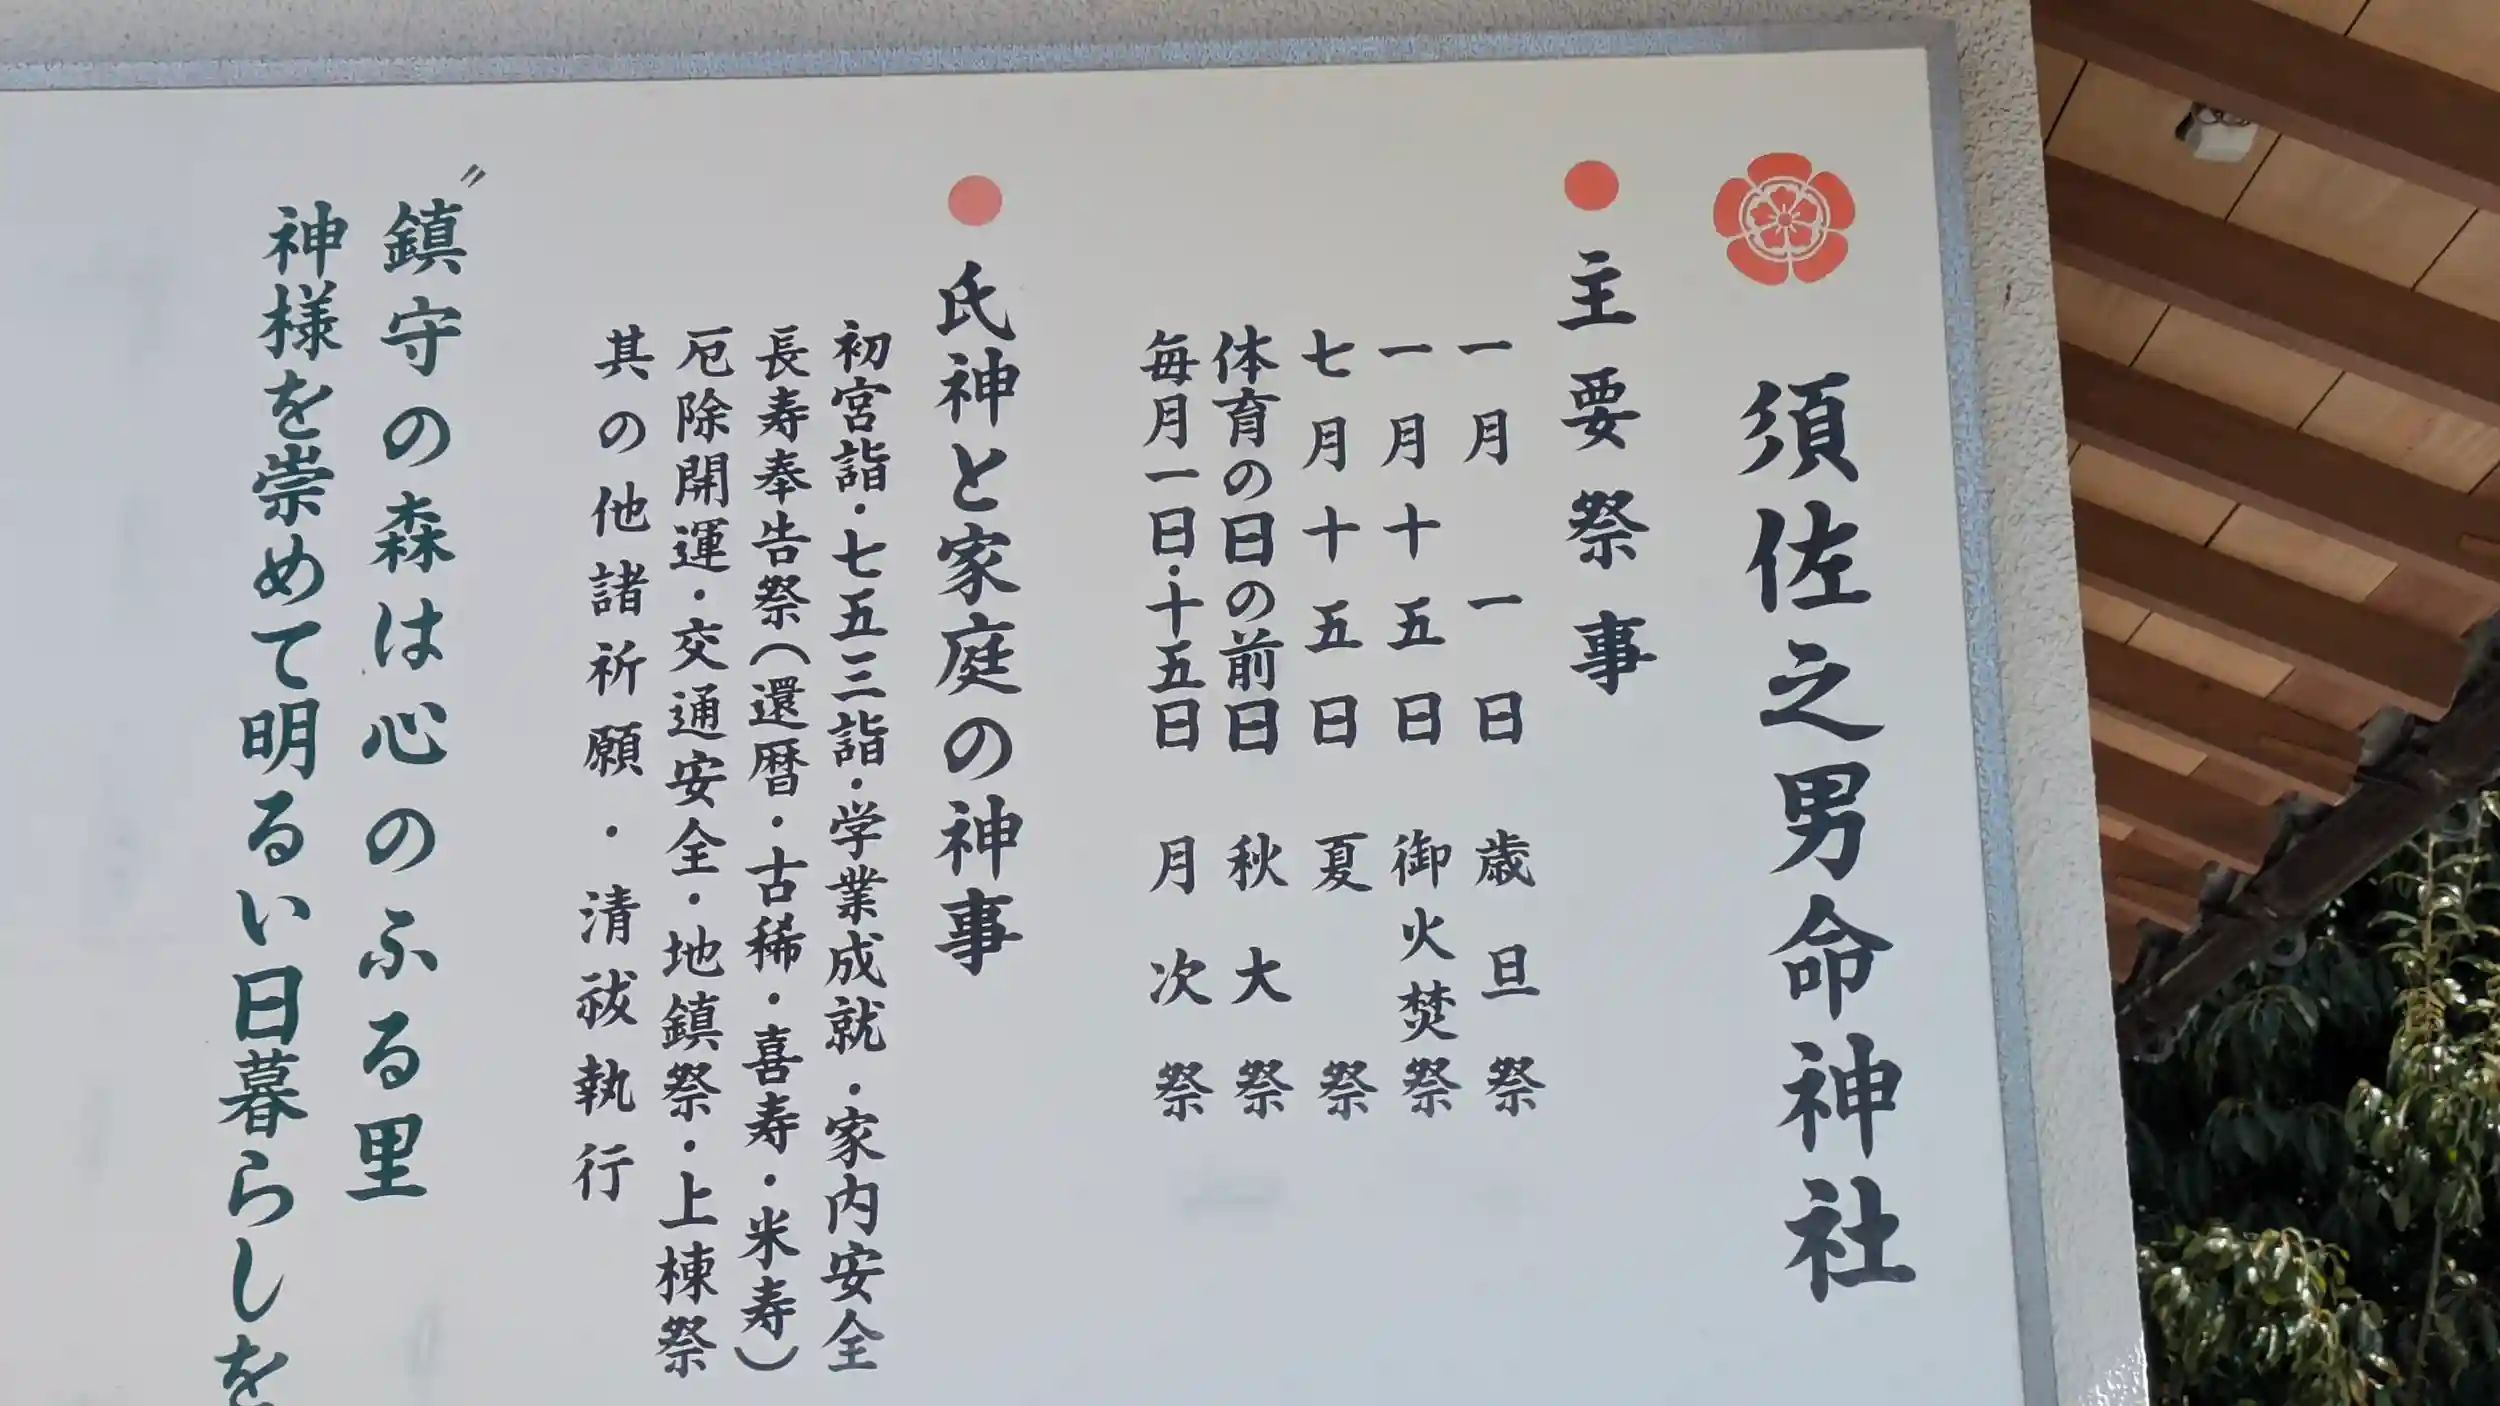 須佐之男命神社
●主要祭事
一月一日 歳旦祭
一月十五日 御火焚祭
七月十五日 夏祭
体育の日の前日 秋大祭
毎月一日・十五日 月次祭
●氏神と家庭の神事
初宮詣・七五三詣・学業成就・家内安全
長寿奉告祭(還暦・古稀・喜寿・米寿)
厄除開運・交通安全・地鎮祭・上棟祭
其の他諸祈願・清祓執行
〝鎮守の森は心のふる里
神様を崇めて明るい日暮らしを